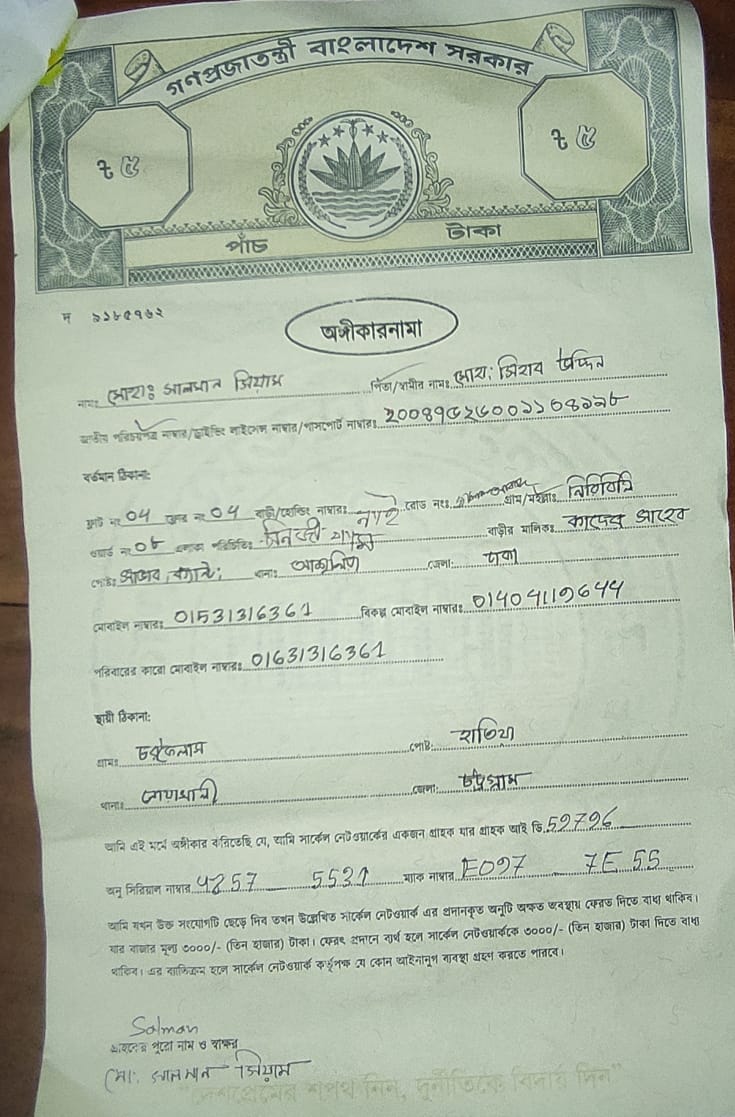 গণপ্রজাতন্ত্রী বাংলাদেশ সরকার
৳ ৫ ৳ ৫
পাঁচ টাকা
ন ৯১৮৫৭৬২
অঙ্গীকারনামা
নামঃ মোঃ সালমান সিয়াম পিতা/স্বামীর নামঃ মোঃ সিরাব উদ্দিন
জাতীয় পরিচয়পত্র নাম্বার/ড্রাইভিং লাইসেন্স নাম্বার/পাসপোর্ট নাম্বারঃ
বর্তমান ঠিকানা:
ফ্লাট নং 04 ফ্লোর নং 04 বাড়ী/হোল্ডিং নাম্বারঃ রোড নংঃ গ্রাম/মহল্লাঃ
ওয়ার্ড নং 08 এলাকা পরিচিতিঃ বাড়ীর মালিকঃ সাহেব
পোষ্টঃ সাভার থানাঃ আশুলিয়া জেলা: ঢাকা
মোবাইল নাম্বারঃ 01531316361 বিকল্প মোবাইল নাম্বারঃ
পরিবারের কারো মোবাইল নাম্বারঃ 01631316361
স্থায়ী ঠিকানা:
গ্রামঃ পোষ্ট:
থানাঃ জেলা:
আমি এই মর্মে অঙ্গীকার করিতেছি যে, আমি সার্কেল নেটওয়ার্কের একজন গ্রাহক যার গ্রাহক আই ডি. 59796
অনু সিরিয়াল নাম্বার 4857 5531 ম্যাক নাম্বার E097 7E 55
আমি যখন উক্ত সংযোগটি ছেড়ে দিব তখন উল্লেখিত সার্কেল নেটওয়ার্ক এর প্রদানকৃত অনুটি অক্ষত অবস্থায় ফেরত দিতে বাধ্য থাকিব।
যার বাজার মূল্য ৩০০০/- (তিন হাজার) টাকা। ফেরৎ প্রদানে ব্যর্থ হলে সার্কেল নেটওয়ার্ককে ৩০০০/- (তিন হাজার) টাকা দিতে বাধ্য
থাকিব। এর ব্যতিক্রম হলে সার্কেল নেটওয়ার্ক কর্তৃপক্ষ যে কোন আইনানুগ ব্যবস্থা গ্রহণ করতে পারবে।
Salman
গ্রাহকের পুরো নাম ও স্বাক্ষর
মো: সালমান সিয়াম
"দেশপ্রেমের শপথ নিন, দুর্নীতিকে বিদায় দিন"